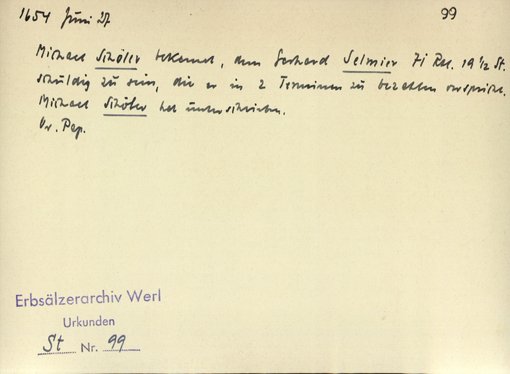 1654 Juni 27. 99
Michael Schöler bekennt, dem Gerhard Selmier 71 Rtl. 19 1/2 St.
schuldig zu sein, die er in 2 Terminen zu bezahlen verspricht.
Michael Schöler hat unterschrieben.
Or. Pap.
Erbsälzerarchiv Werl
Urkunden
St Nr. 99